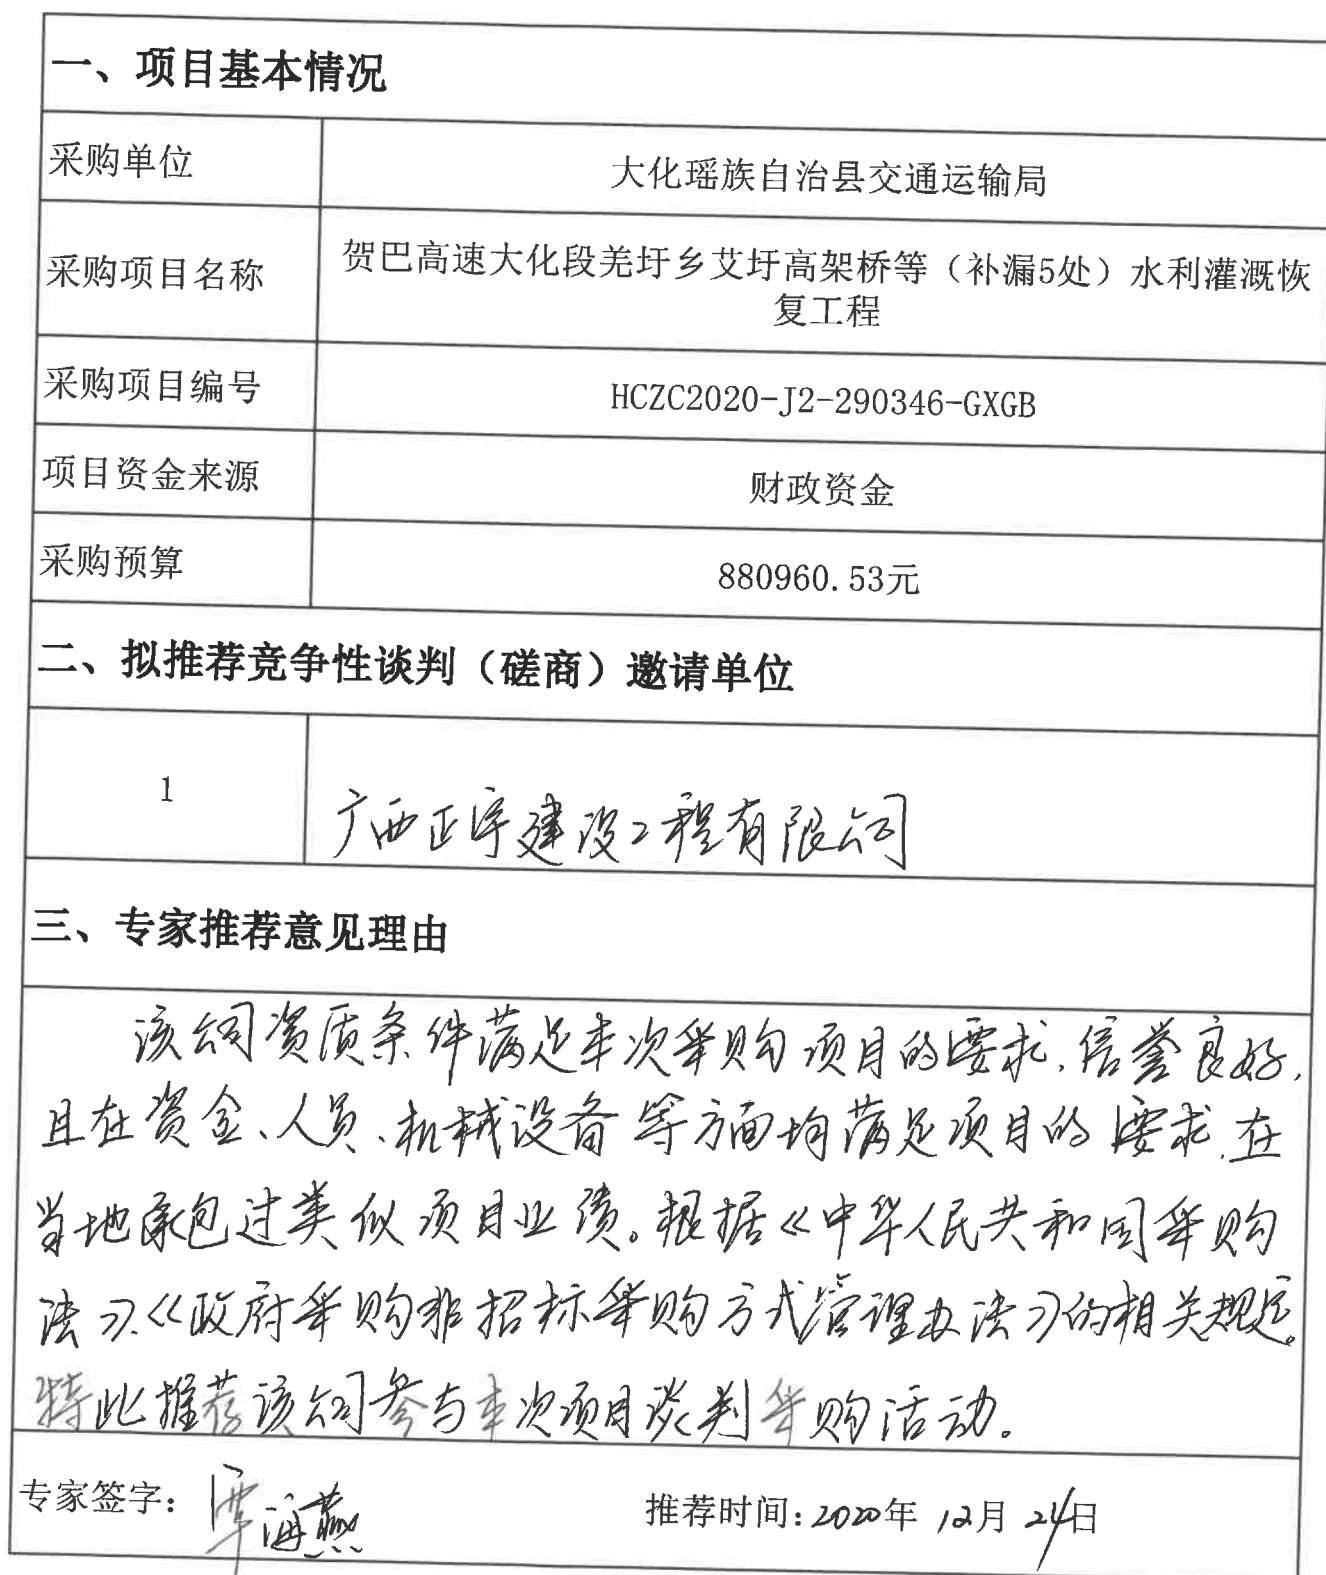 一、项目基本情况
采购单位
大化瑶族自治县交通运输局
采购项目名称
贺巴高速大化段羌圩乡艾圩高架桥等（补漏5处）水利灌溉恢
复工程
采购项目编号
HCZC2020-J2-290346-GXGB
项目资金来源
财政资金
采购预算
880960.53元
二、拟推荐竞争性谈判（磋商）邀请单位
1
广西正宇建设工程有限公司
三、专家推荐意见理由
该公司资质条件满足本次采购项目的要求,信誉良好,
且在资金、人员、机械设备等方面均满足项目的要求,在
当地承包过类似项目业绩。根据《中华人民共和国采购
法》、《政府采购非招标采购方式管理办法》的相关规定。
特此推荐该公司参与本次项目谈判采购活动。
专家签字：覃海燕
推荐时间：2020年 12月 24日